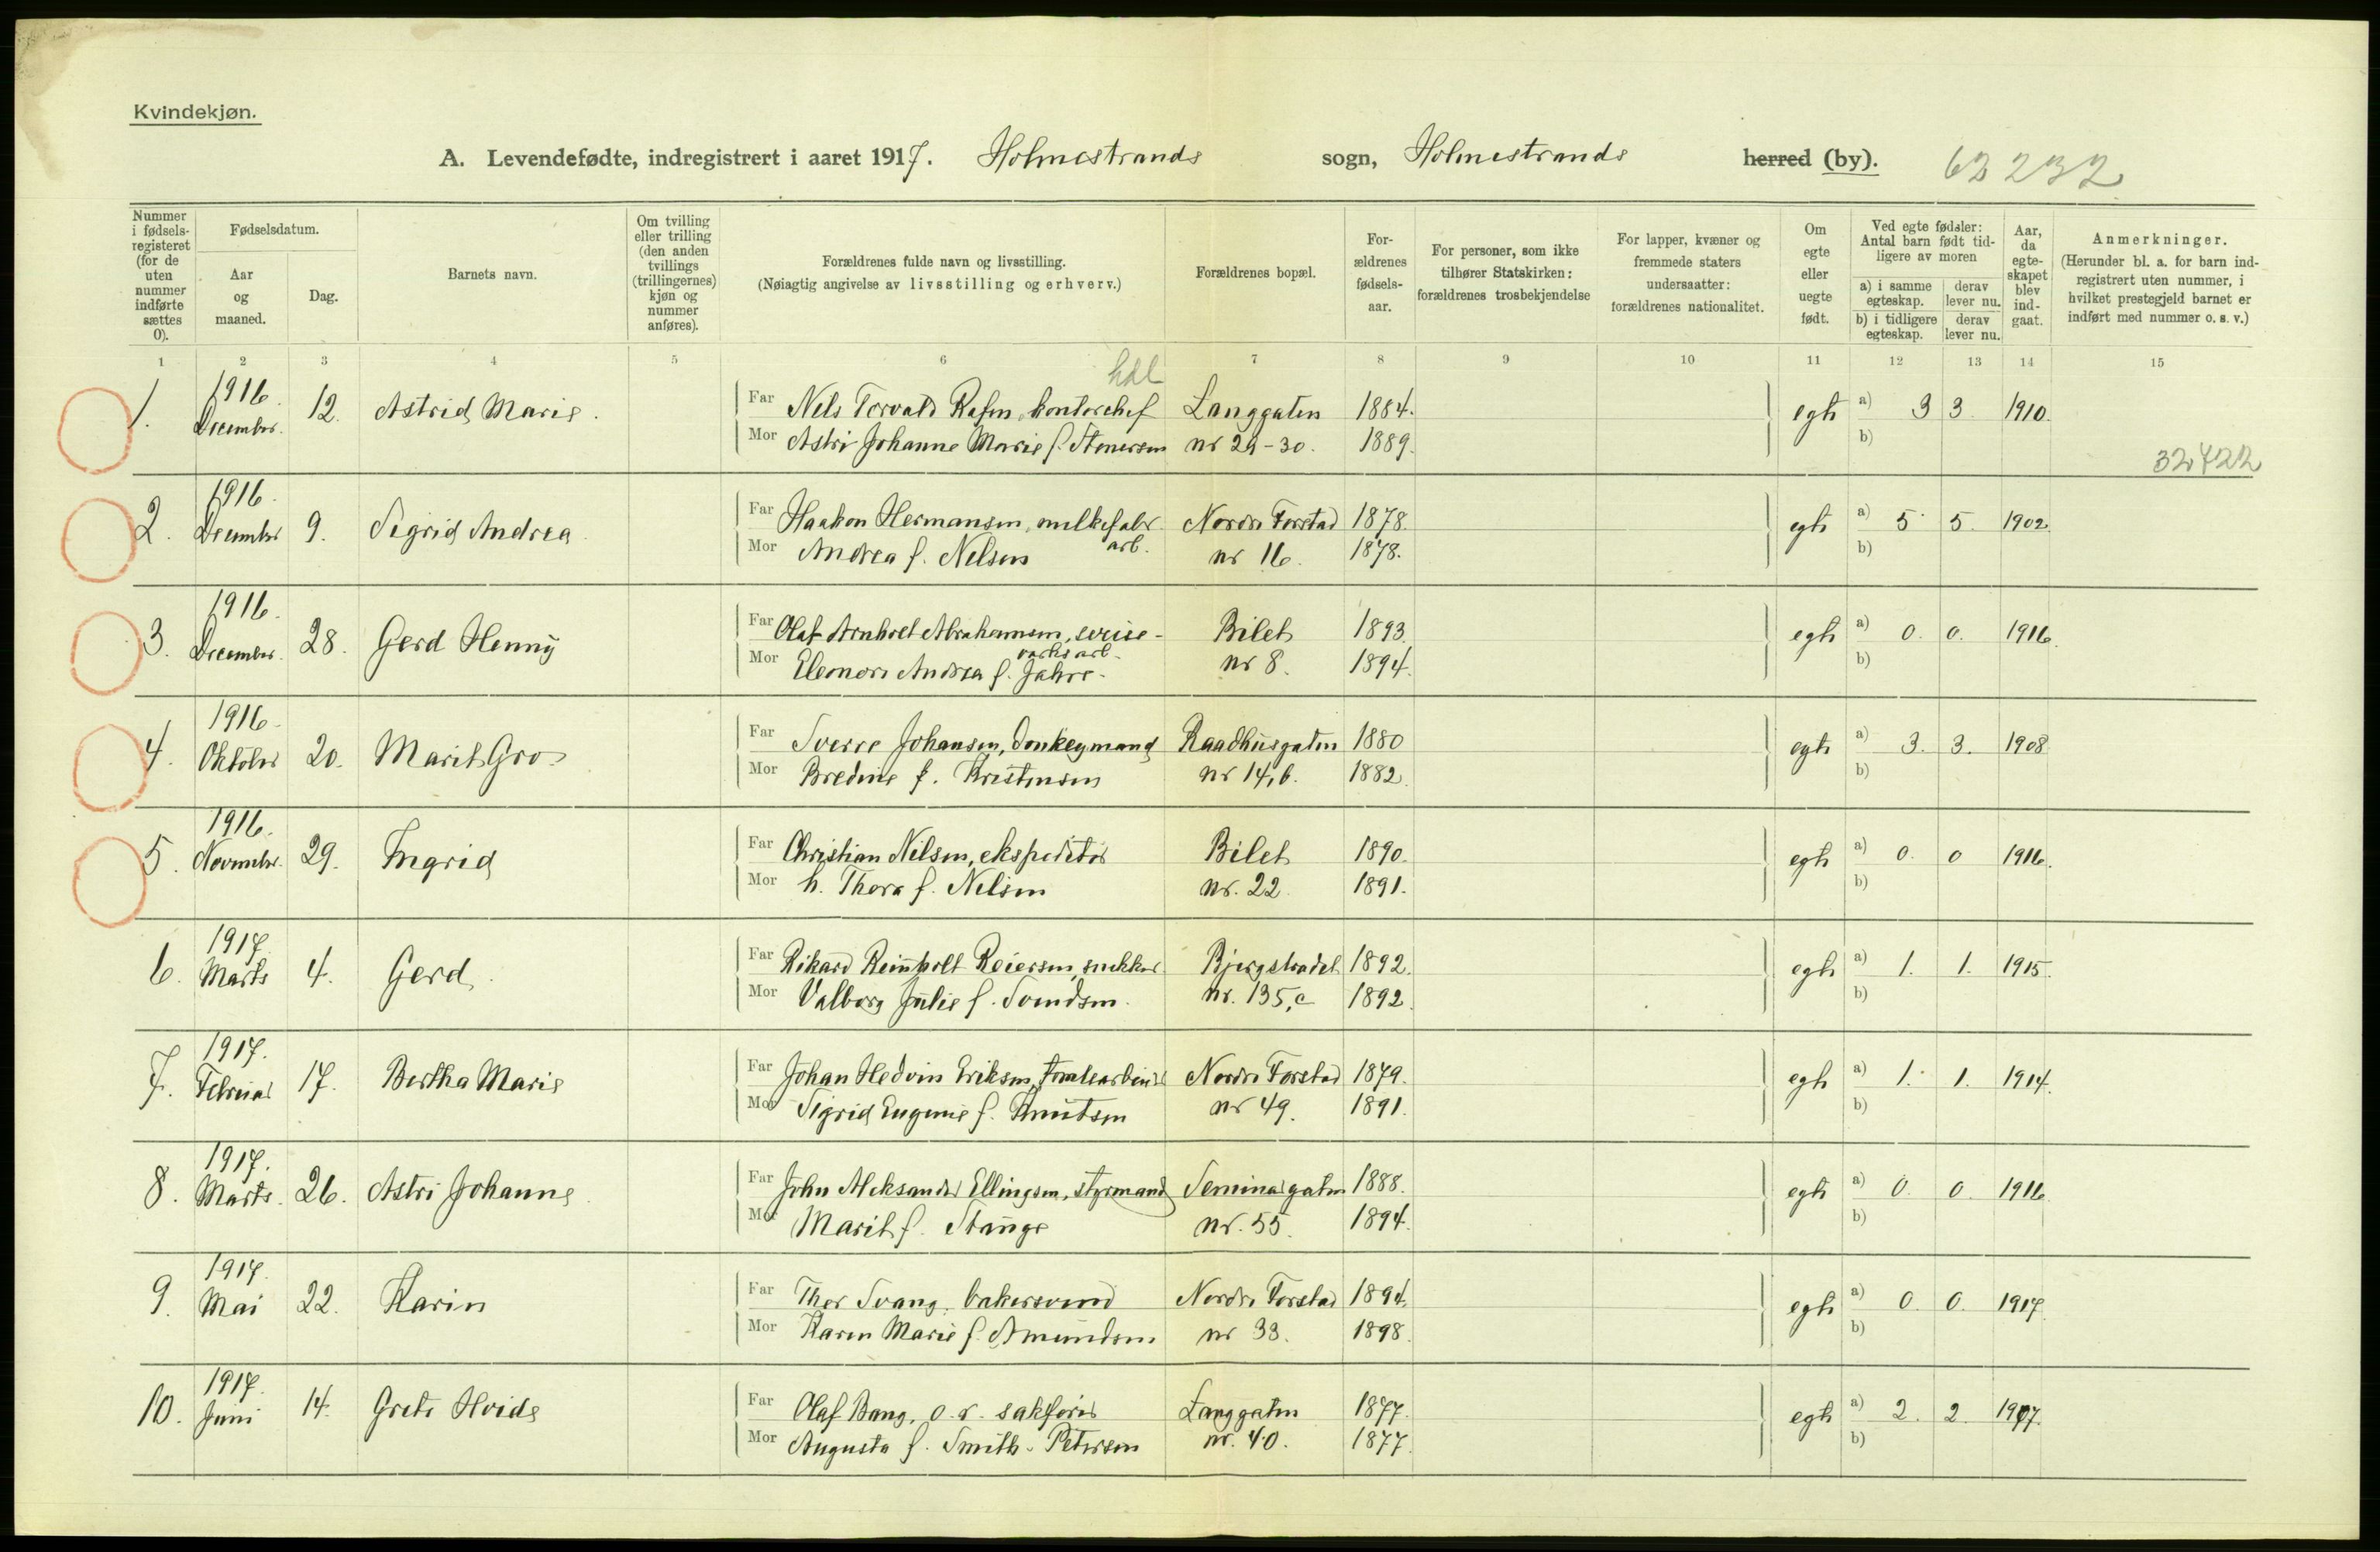 Kvindekjøn.
A. Levendefødte, indregistrert i aaret 1917. Holmestrands sogn, Holmestrands herred (by). 62 232
Nummer i fødsels-registeret (for de uten nummer indførte sættes 0).
Fødselsdatum.
Aar og maaned.
Dag.
Barnets navn.
Om tvilling eller trilling (den anden tvillings (trillingernes) kjøn og nummer anføres).
Forældrenes fulde navn og livsstilling.
(Nøiagtig angivelse av livsstilling og erhverv.)
Forældrenes bopæl.
For-ældrenes fødsels-aar.
For personer, som ikke tilhører Statskirken: forældrenes trosbekjendelse
For lapper, kvæner og fremmede staters undersaatter: forældrenes nationalitet.
Om egte eller uegte født.
Ved egte fødsler: Antal barn født tid-ligere av moren
a) i samme egteskap. derav lever nu.
b) i tidligere egteskap. derav lever nu.
Aar, da egte-skapet blev ind-gaat.
Anmerkninger.
(Herunder bl. a. for barn ind-registrert uten nummer, i hvilket prestegjeld barnet er indført med nummer o. s. v.)
1 2 3 4 5 6 7 8 9 10 11 12 13 14 15
hdl
1. 1916. December. 12. Astrid Marie. Far Nils Torvald Rafen, kontorchef Langgaten 1884. egte a) 3 3. 1910.
Mor Astri Johanne Marie f. Stenersen nr 29-30. 1889. b)
32422
2. 1916. December 9. Sigrid Andrea. Far Haakon Hermansen, melkefabr. arb. Nordre Forstad 1878. egte a) 5 5. 1902.
Mor Andrea f. Nilsen nr 16. 1878. b)
3. 1916. December. 28. Gerd Henny Far Olaf Arnholt Abrahamsen, sveise-verks arb. Bilet 1893. egte a) 0. 0. 1916.
Mor Eleonore Andrea f. Jahre. nr 8. 1894. b)
4. 1916. Oktober 20. Marit Gro Far Sverre Johansen, donkeymand Raadhusgaten 1880 egte a) 3. 3. 1908
Mor Bredine f. Kristensen nr 14, b. 1882. b)
5. 1916. November. 29. Ingrid Far Christian Nilsen, ekspeditør Bilet 1890. egte a) 0. 0 1916.
Mor h. Thora f. Nilsen nr. 22. 1891. b)
6. 1917. Marts 4. Gerd. Far Rikard Reinholt Reiersen, snekker Bjergstradet 1892. egte a) 1. 1. 1915.
Mor Valborg Julie f. Svendsen. nr. 135, c 1892. b)
7. 1917. Februar 17. Bertha Marie Far Johan Hedvin Eriksen, tomtearbeider Nordre Forstad 1879. egte a) 1. 1. 1914.
Mor Sigrid Eugenie f. Knutsen nr 49. 1891. b)
8. 1917. Marts. 26. Astri Johanne. Far John Aleksander Ellingsen, styrmand Seminargaten 1888. egte a) 0. 0. 1916.
Mor Marit f. Stange nr. 55. 1894. b)
9. 1917. Mai 22. Karin Far Thor Svang. bakersvend Nordre Forstad 1894. egte a) 0. 0. 1917.
Mor Karen Marie f. Amundsen nr 33. 1898. b)
10. 1917. Juni 14. Grete Hvide Far Olaf Bang, o. r. sakfører Langgaten 1877. egte a) 2. 2. 1907.
Mor Augusta f. Smith-Petersen nr. 40. 1877. b)